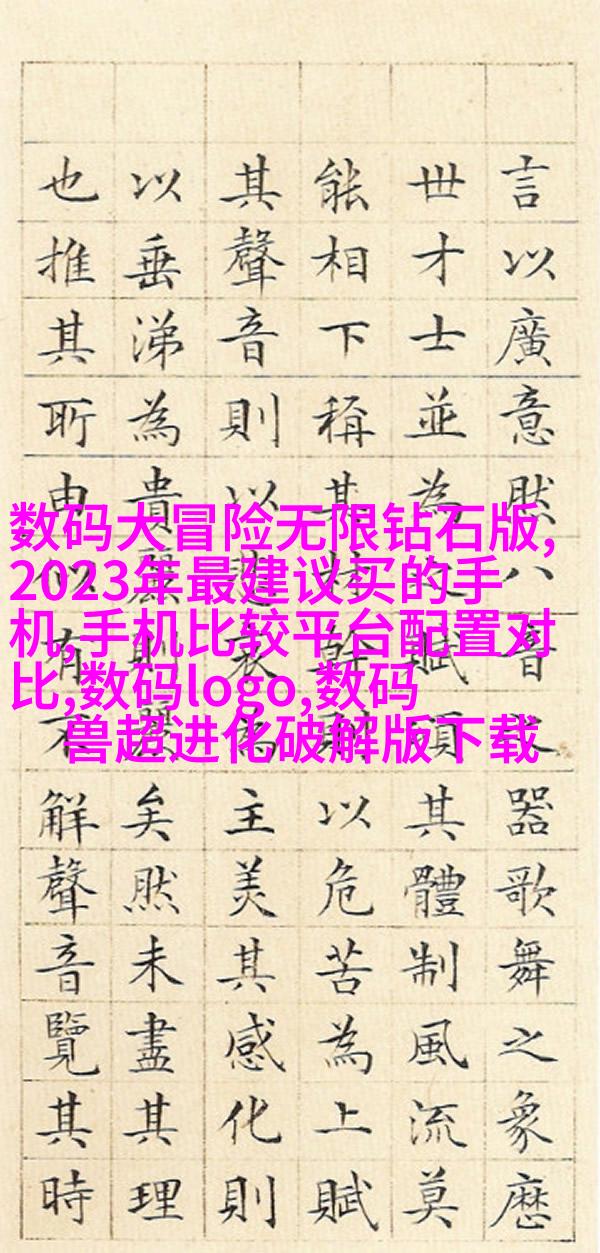 言以廣意然八音之器歌舞之象歷
世才士並為之賦頌其體制風流莫
能相下稱其材幹則以危苦為上賦
其聲音則以悲哀為主美其感化則
以垂涕為貴麗則麗矣然未盡其理
也推其所由似有不解聲音覽其時
数码大冒险无限钻石版,
2023年最建议买的手
机,手机比较平台配置对
比,数码logo,数码
兽超进化破解版下载